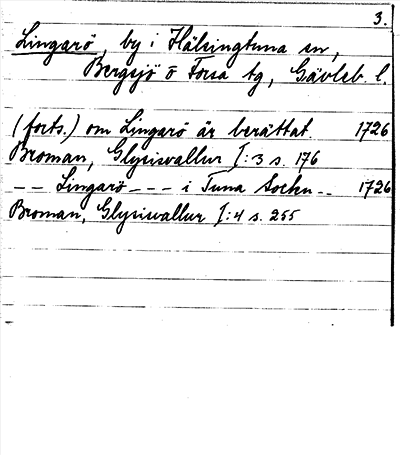 3.
Lingarö, by i Hälsingtuna sn,
Bergsjö o Forsa tg, Gävleb. l.
(forts.) om Lingarö är berättat. 1726
Broman, Glysisvallur I:3 s. 176
-- Lingarö --- i Tuna Sockn -- 1726
Broman, Glysisvallur I:4 s. 255